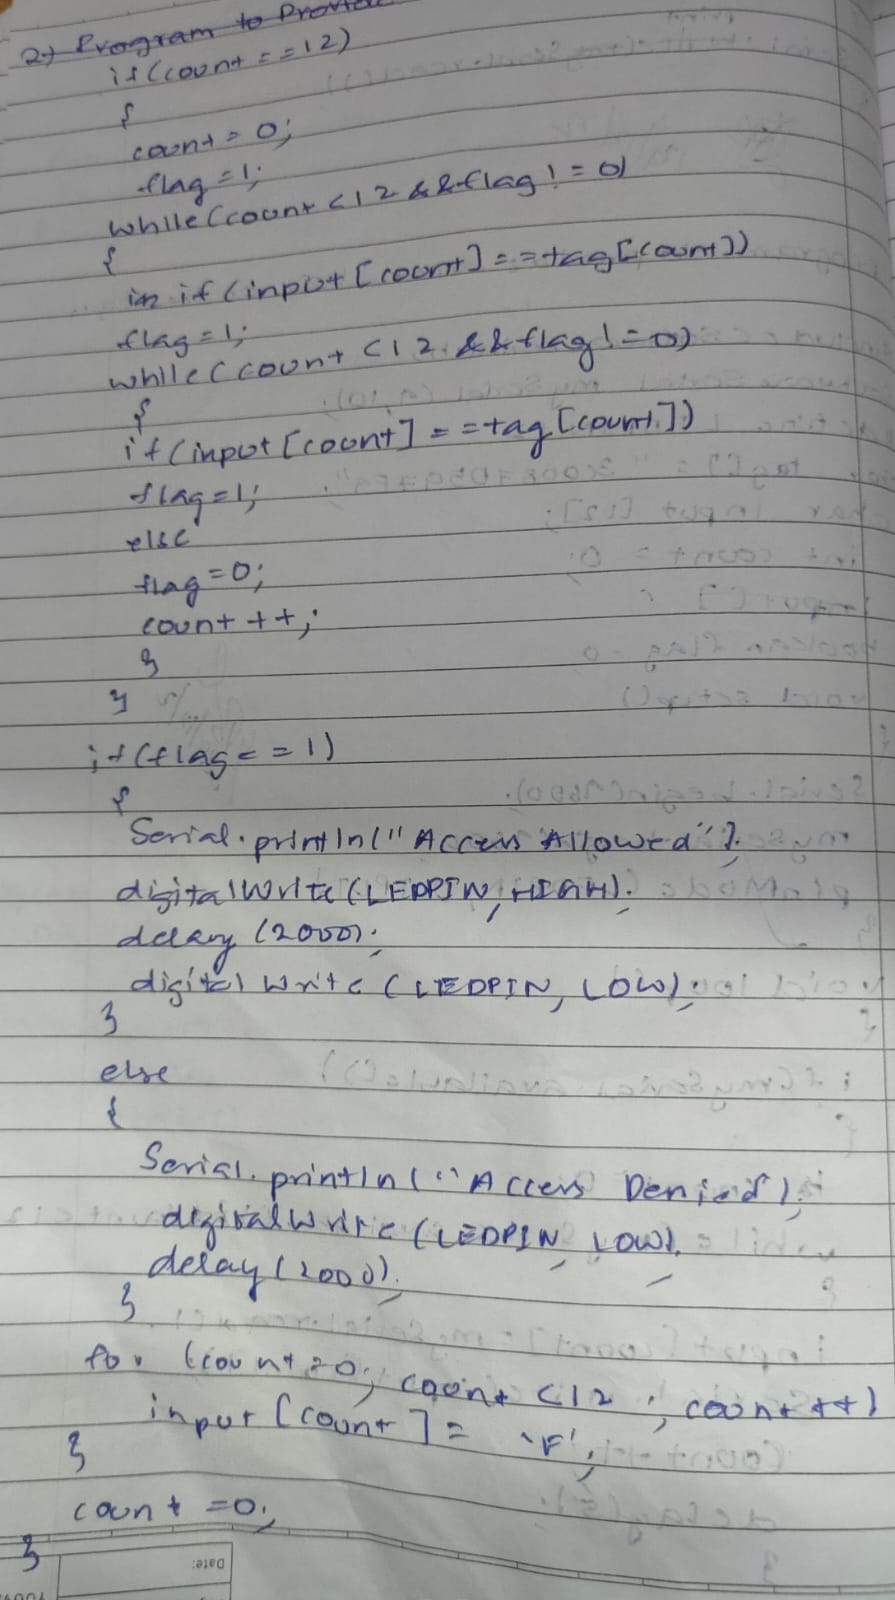 2) Program to Provide
if(count = = 12)
{
count = 0;
flag = 1;
while(count < 12 && flag ! = 0)
{
in if (input [count] = = tag [count])
flag = 1;
while(count < 12 && flag ! = 0)
{
if(input [count] = = tag [count])
flag = 1;
else
flag = 0;
count ++;
}
}
if(flag = = 1)
{
Serial.println("Access Allowed");
digitalWrite(LEDPIN, HIGH);
delay (2000);
digital Write (LEDPIN, LOW);
}
else
{
Serial.println("Access Denied);
digitalWrite (LEDPIN, LOW);
delay (2000);
}
for (count = 0; count < 12 ; count ++)
input [count] = 'F';
}
count = 0;
}
Date: